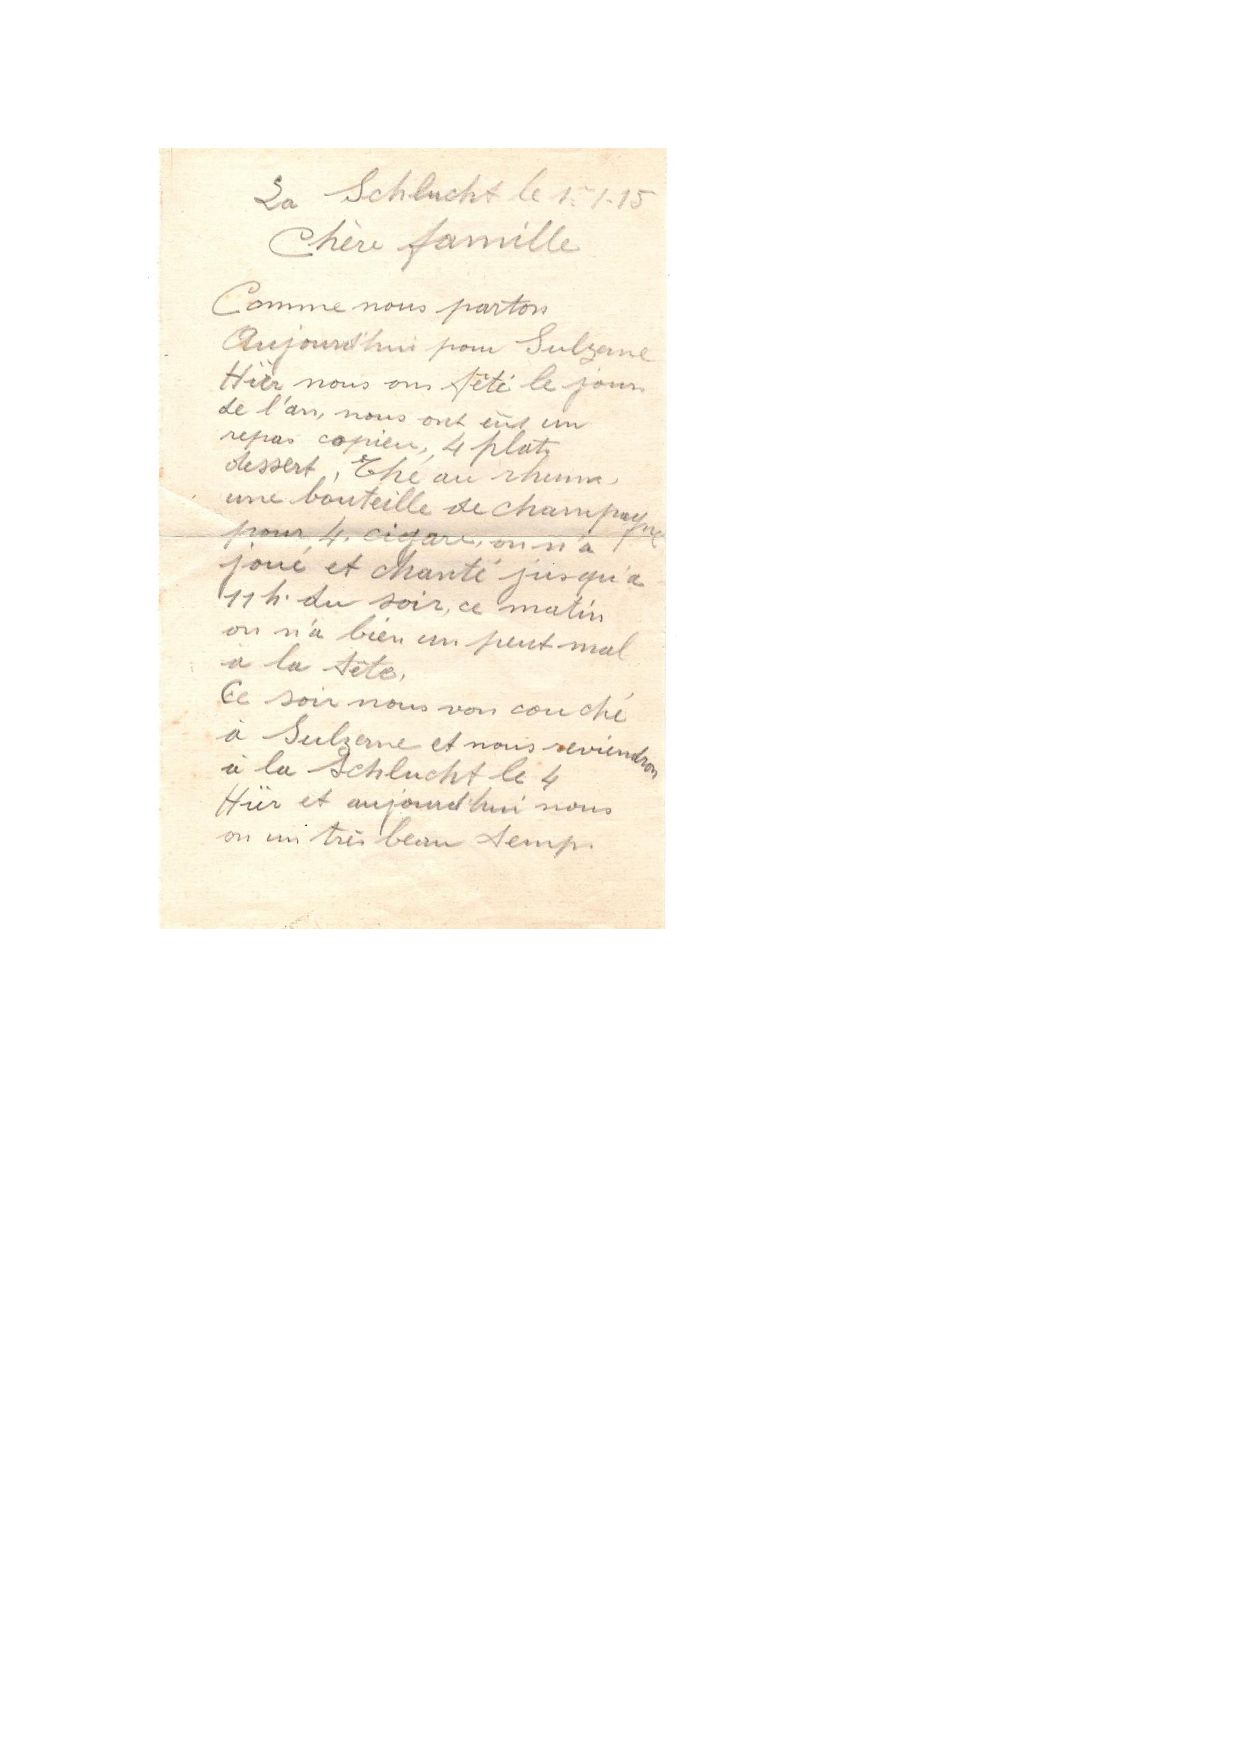 La Schlucht le 1-1-15
Chère famille
Comme nous partons
Aujourd'hui pour Sulzerne
Hïer nous ons fêté le jour
de l'an, nous ont eût un
repas copieu, 4 plats
dessert, Thé au rhum,
une bouteille de champagne
pour 4. cigare, on n'a
joué et chanté jusqu'a
11 h. du soir, ce matin
on n'a bien un peut mal
à la tête,
Ce soir nous von couché
à Sulzerne et nous reviendron
à la Schlucht le 4
Hïer et aujourd'hui nous
on un très beau temp.